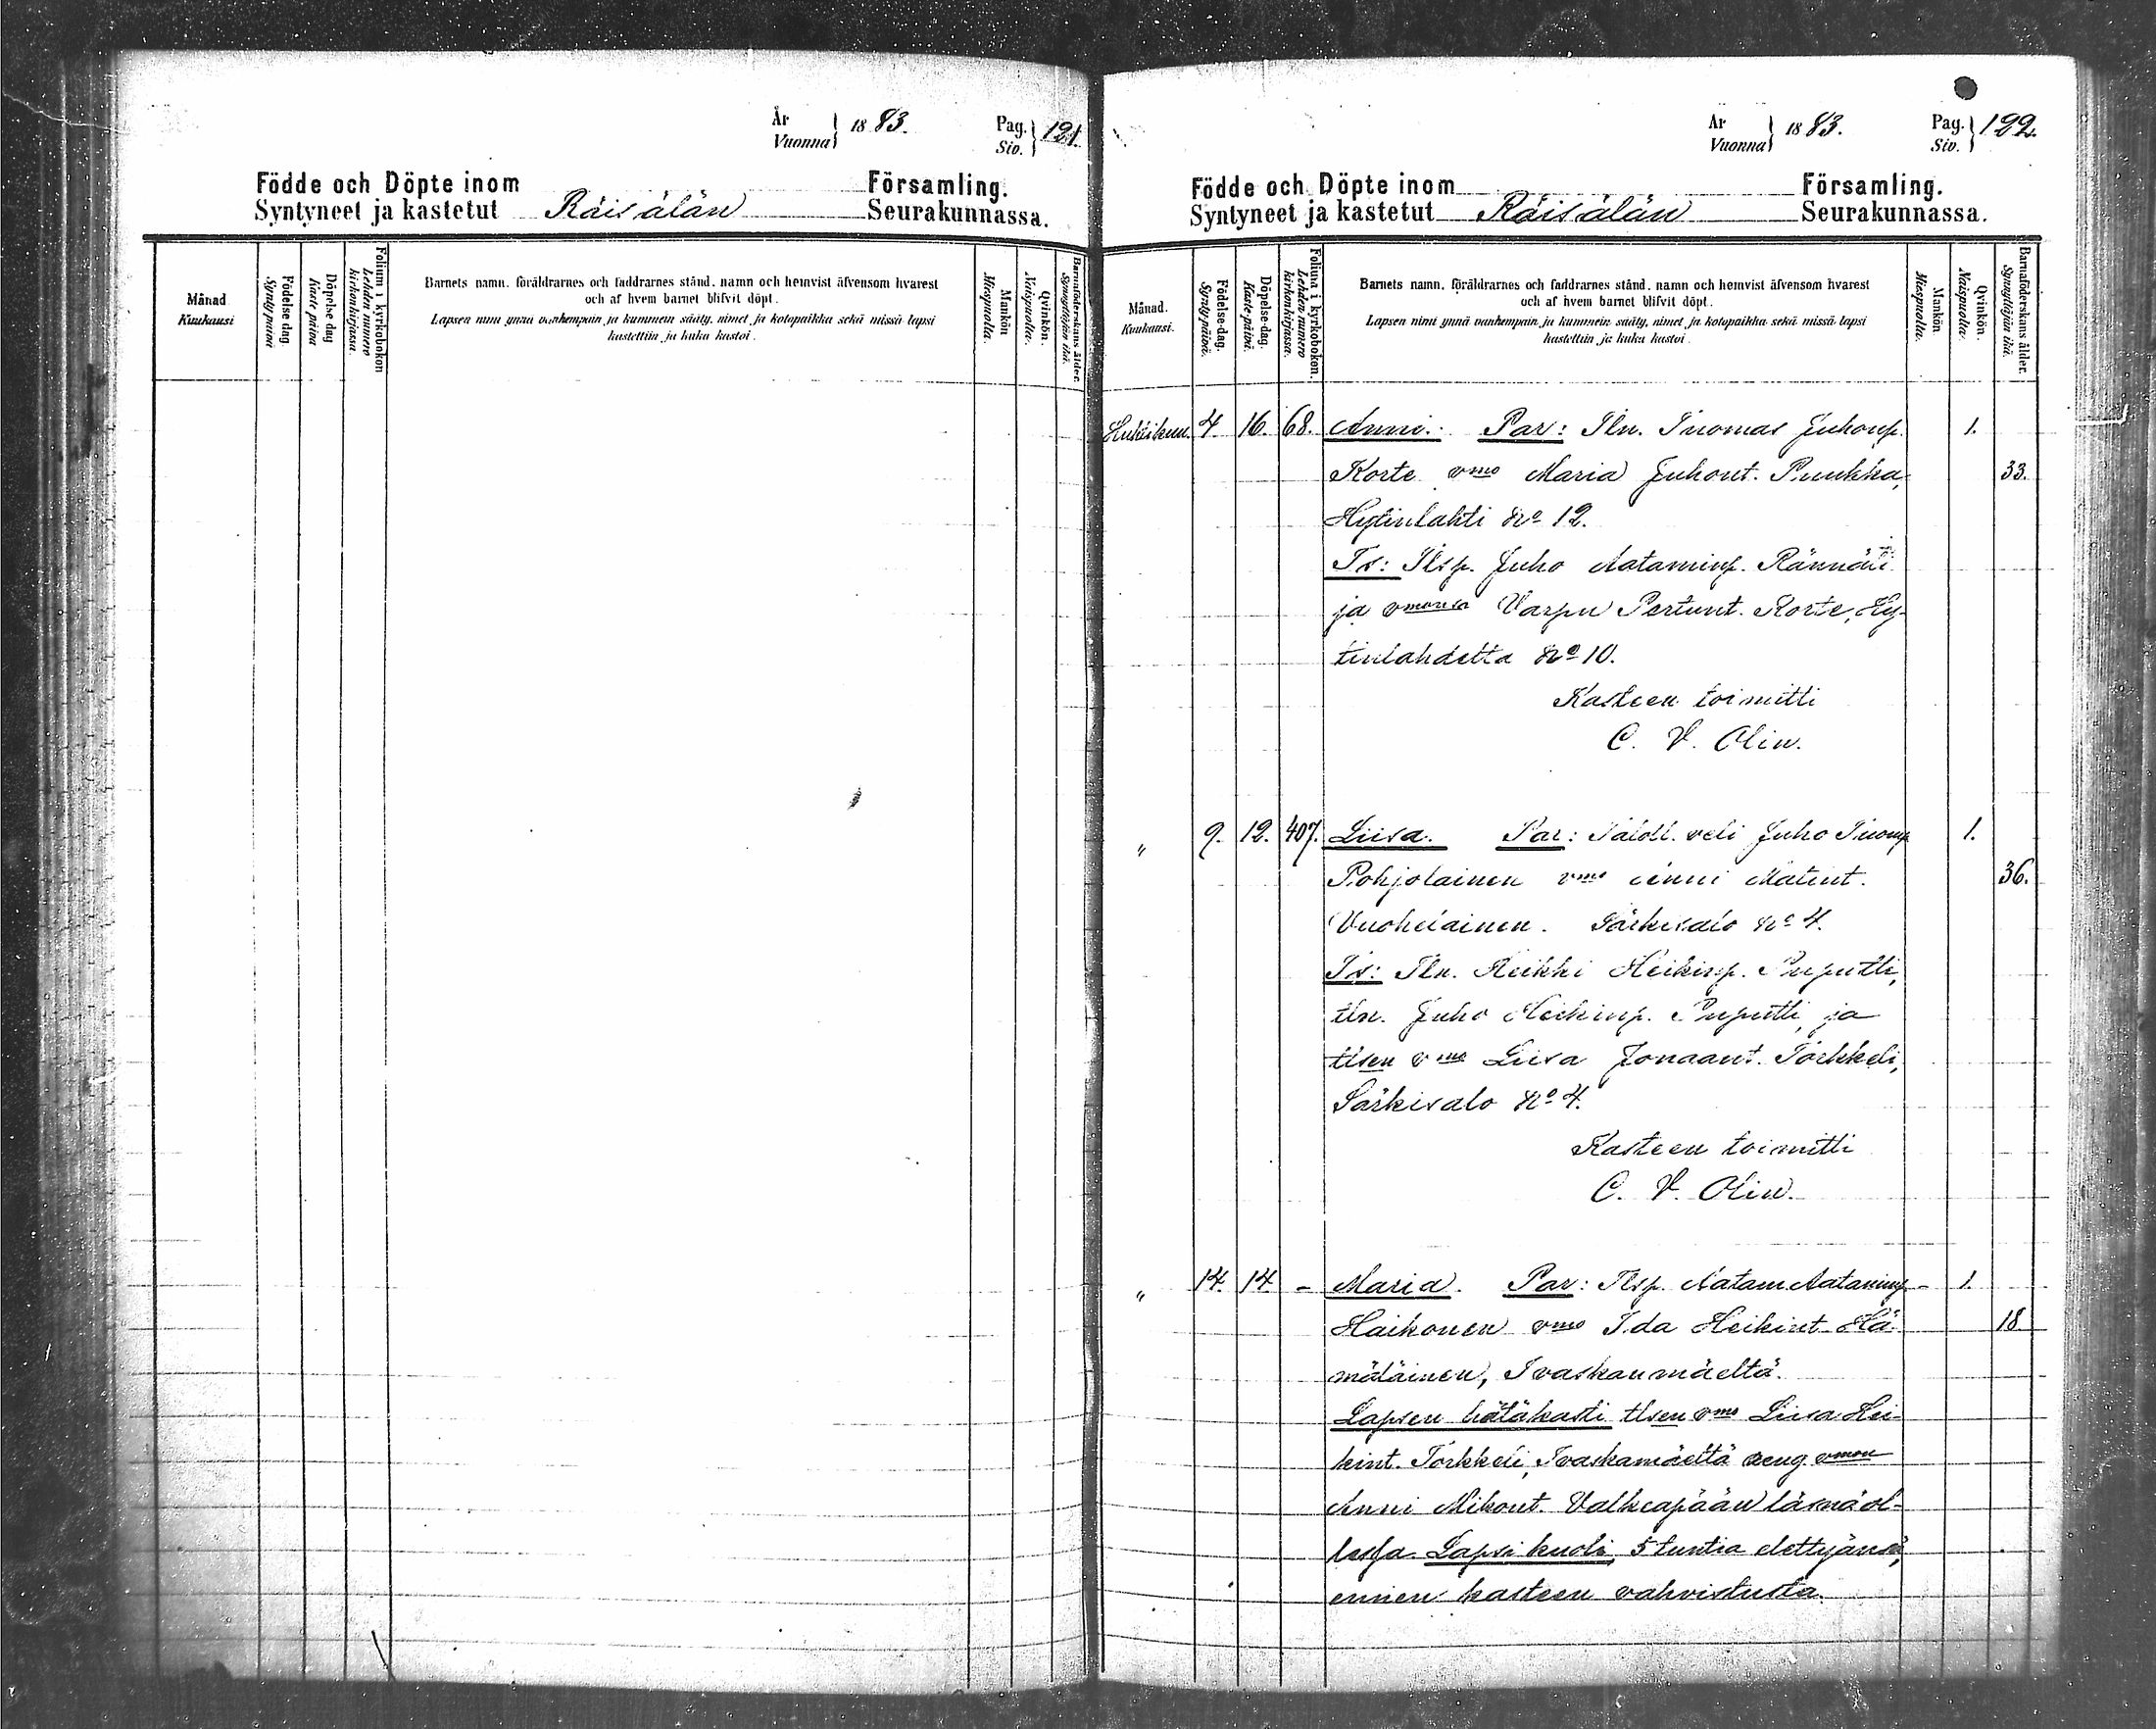 År
Vuonna } 1883.
Pag.
Siv. } 121.
Födde och Döpte inom Församling.
Syntyneet ja kastetut Räisälän Seurakunnassa.
Månad
Kuukausi
Födelse dag.
Synty päivä
Döpelse dag
Kaste päivä
Folium i kyrkoboken
Lehden numero kirkonkirjassa.
Barnets namn, föräldrarnes och faddrarnes stånd, namn och hemvist äfvensom hvarest
och af hvem barnet blifvit döpt.
Lapsen nimi ynnä vanhempain ja kummein sääty, nimet ja kotopaikka sekä missä lapsi
kastettiin ja kuka kastoi.
Mankön
Miespuolta.
Qvinkön.
Naispuolta.
Barnaföderskans ålder.
Synnyttäjän ikä.
År
Vuonna } 1883.
Pag.
Siv. } 122.
Födde och Döpte inom Församling.
Syntyneet ja kastetut Räisälän Seurakunnassa.
Månad.
Kuukausi.
Födelse-dag.
Synty-päivä.
Döpelse-dag.
Kaste-päivä.
Folium i kyrkoboken.
Lehden numero kirkonkirjassa.
Barnets namn, föräldrarnes och faddrarnes stånd, namn och hemvist äfvensom hvarest
och af hvem barnet blifvit döpt.
Lapsen nimi ynnä vanhempain ja kummein sääty, nimet ja kotopaikka sekä missä lapsi
kastettiin ja kuka kastoi.
Mankön
Miespuolta.
Qvinkön.
Naispuolta.
Barnaföderskans ålder.
Synnyttäjän ikä.
Huhtikuu. 4. 16. 68. Anni. Par: Tln. Tuomas Juhonp. 1.
Korte vmo Maria Juhont. Puukka, 33.
Hytinlahti No 12.
Ts: Tlsp. Juho Aataminp. Rännäli
ja vmonsa Varpu Pertunt. Korte, Hy-
tinlahdelta No 10.
Kasteen toimitti
C. V. Olin.
" 9. 12. 407. Liisa. Par: Taloll. veli Juho Tuomp 1.
Pohjolainen vmo Anni Matint. 36.
Vuohelainen. Särkisalo No 4.
Ts: Tln. Heikki Heikinp. Puputti,
tln. Juho Heikinp. Puputti, ja
tlsen vmo Liisa Joonaant. Törkkeli,
Särkisalo No 4.
Kasteen toimitti
C. V. Olin.
" 14. 14. - Maria. Par: Tlsp. Aatam Aataminp - 1.
Haikonen vmo Ida Heikint. Hä- 18
mäläinen, Ivaskanmäeltä.
Lapsen hätäkasti tlsen vmo Liisa Hei-
kint. Törkkeli, Ivaskamäeltä reng. vmon
Anni Mikont. Valkeapään läsnäol-
lessa. Lapsi kuoli, 5 tuntia elettyänsä,
ennen kasteen vahvistusta.